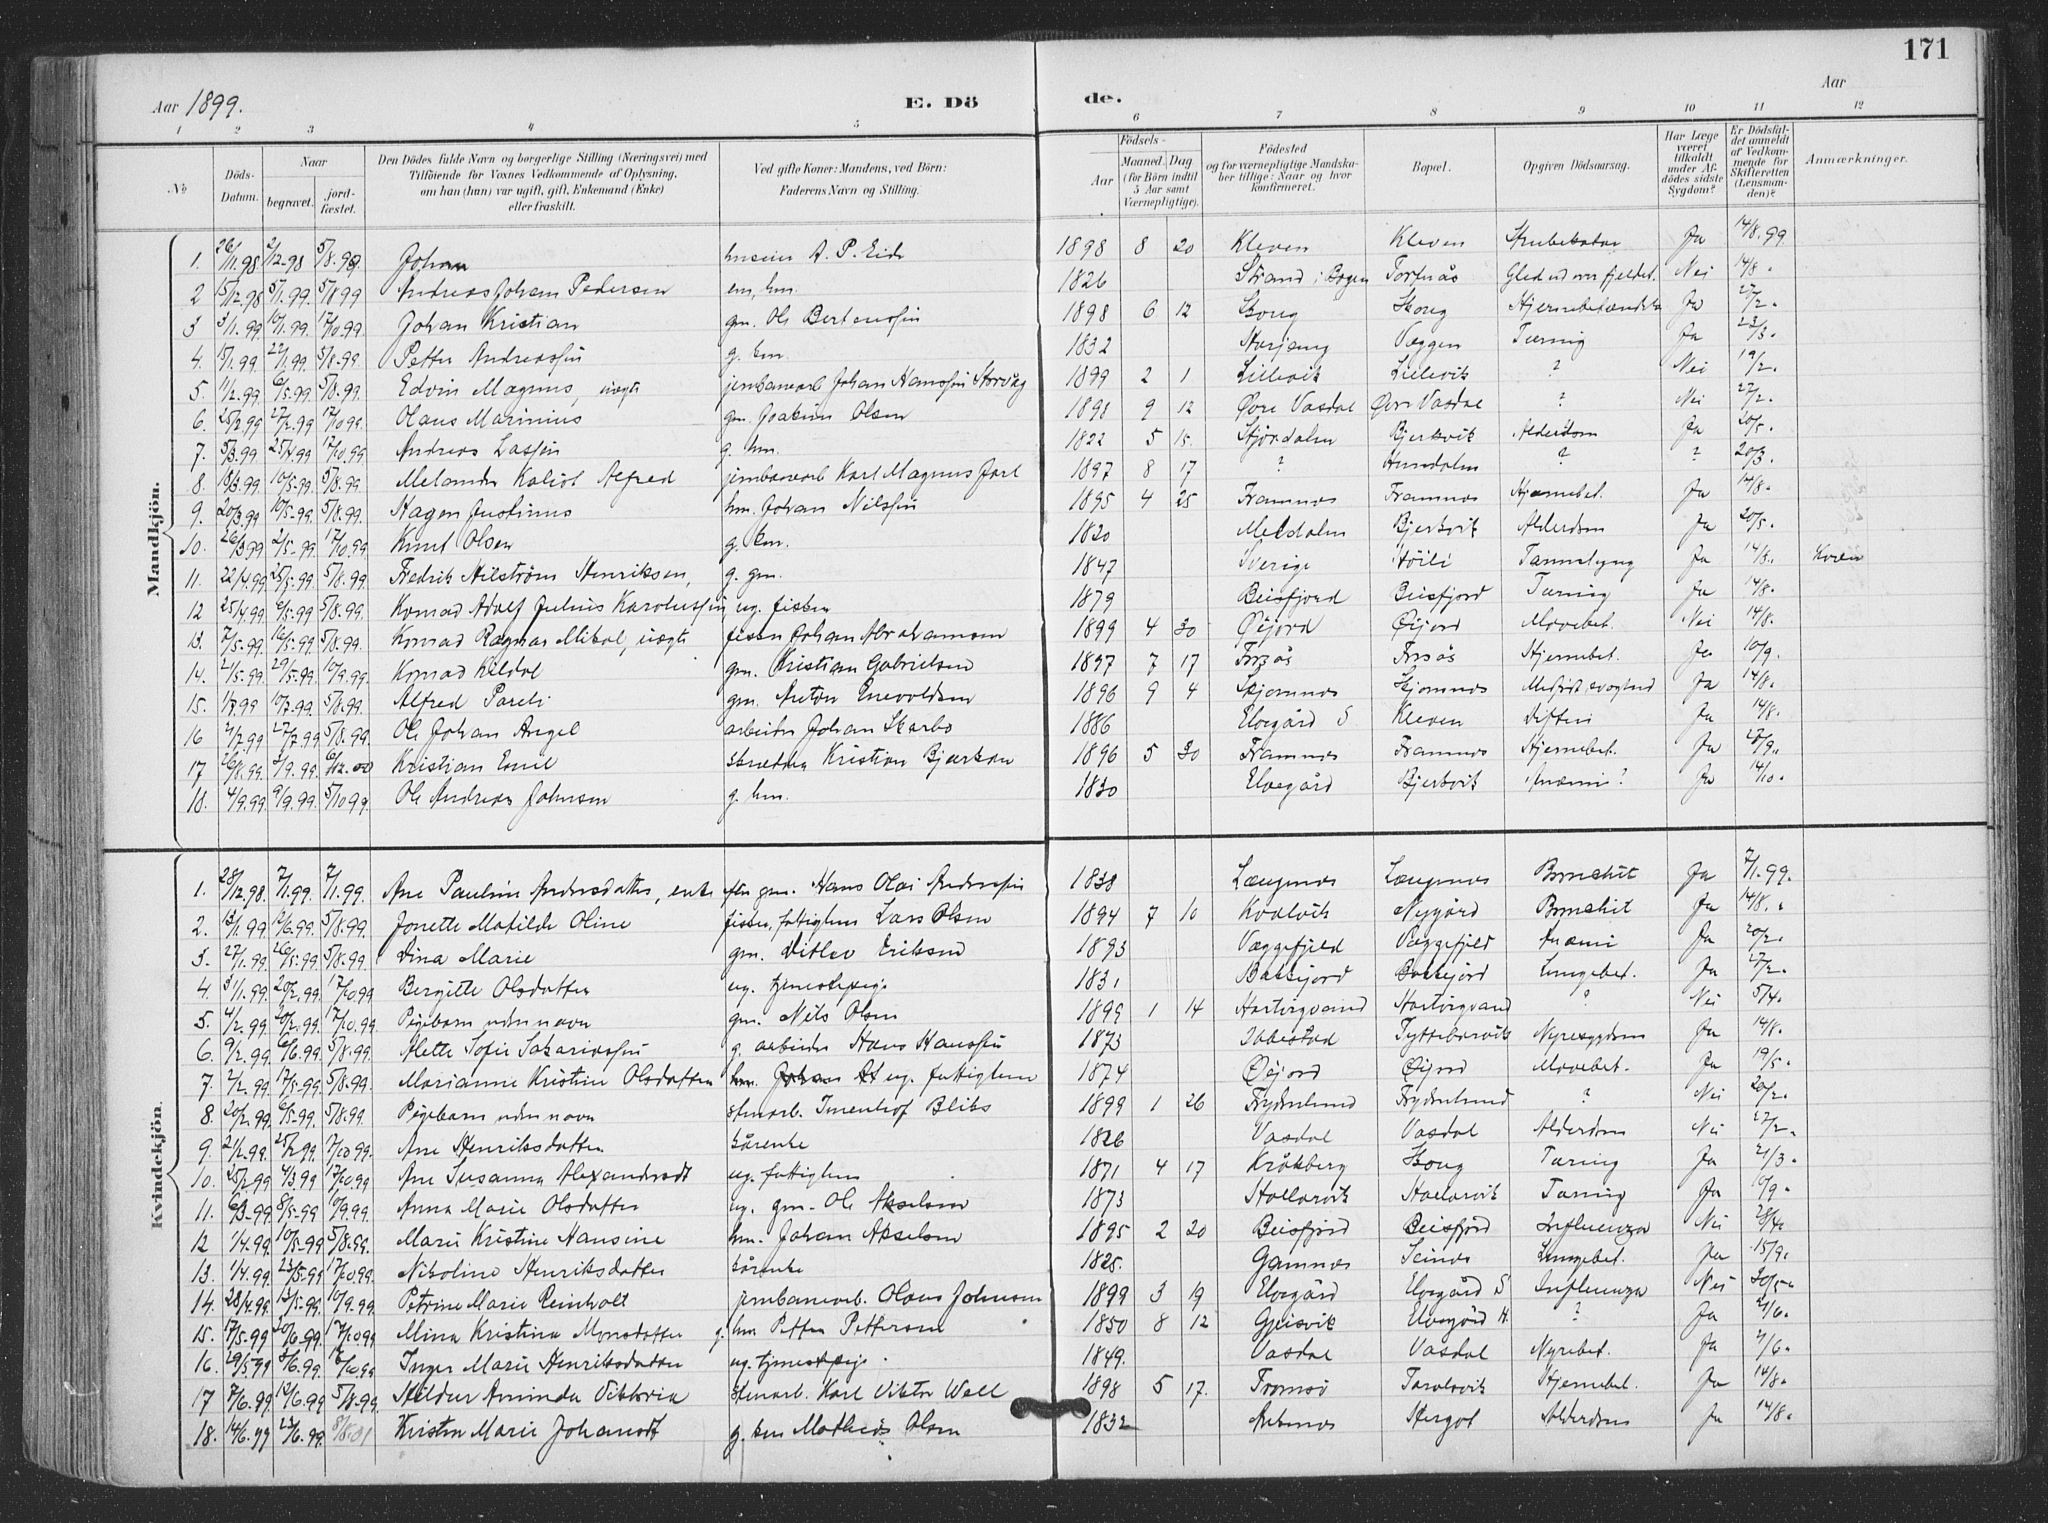 171
Aar 1899.
E. Dö
de.
Aar
1 2 3 4 5 6 7 8 9 10 11 12
No
Döds-Datum.
Naar
begravet.
jord-fæstet.
Den Dödes fulde Navn og borgerlige Stilling (Næringsvei) med Tilföiende for Voxnes Vedkommende af Oplysning, om han (hun) var ugift, gift, Enkemand (Enke) eller fraskilt.
Ved gifte Koner: Mandens, ved Börn: Faderens Navn og Stilling.
Födsels-
Aar
Maaned. Dag (for Börn indtil 5 Aar samt Værnepligtige).
Födested og for værnepligtige Mandskaber tillige: Naar og hvor konfirmeret.
Bopæl.
Opgiven Dödsaarsag.
Har Læge været tilkaldt under Afdödes sidste Sygdom?
Er Dödsfaldet anmeldt af Vedkommende for Skifteretten (Lensmanden)?
Anmærkninger.
Mandkjön.
1. 26/11.98 2/12-98 5/8.99 Johan huseier A. P. Eide 1898 8 20 Kleven Kleven Ja 14/8.99
2 15/12.98 5/1.99. 5/8 99 Andreas Johan Pedersen em, hm. 1826 Strand i Bogen Tortnås Gled ud over fjeldet. Nei 14/8
3 3/1.99 10/1.99. 17/10.99. Johan Kristian gm. Ole 1898 6 12 Skoug Skoug Ja 27/2.
4. 15/1.99 22/1.99. 5/8-99 Petter Andreassen g. hm. 1832 Væggen Tæring Ja 23/3.
5. 11/2.99 6/5.99. 5/8.99. Edvin Magnus, uægte jernbanearb. Johan Hanssen Storvåg 1899 2 1 Lillevik Lillevik ? Nei 19/2.
6. 25/2.99 27/2.99 17/10 99. Olaus Marinius gm. Joakim Olsen 1898 9 12 Øvre Vasdal Øvre Vasdal ? Nei 27/2.
7. 5/3.99 25/4.99 17/10.99. Andreas Lassen g. hm. 1822 5 15. Stjördalen Bjerkvik Alderdom Ja 20/5.
8. 18/3.99 10/5-99. 5/8.99. Melander Alfred jernbanearb Karl Magnus Jarl 1897 8 17 ? Hundalen ? ? 20/3.
9. 20/3.99 10/5-99. 5/8.99. Hagen Justinus hm. Johan Nilssen 1895 4 25 Framnes Framnes Hjernebet. Ja 14/8.
10. 26/3.99 2/5-.99. 17/10.99. Knut Olsen g. hm. 1820 Meldalen Bjerkvik Alderdom Ja 20/5.
11. 22/4.99 25/5.99. 5/8.99. Fredrik Hilström Henriksen, g. gm. 1847 Sverige Ja 14/8.
12 25/4.99 6/5.99 5/8.99. Konrad Adolf Julius Karolussen ug. fisker 1879 Beisfjord Beisfjord Tæring Ja 14/8.
13. 7/5.99 16/5.99 5/8.99. Konrad Ragnar Mikal, uægte fisker Johan Abrahamsen 1899 4 30 Øijord Øijord Mavebet. Nei 14/8.
14. 21/5.99 29/5-99. 10/9.99. Konrad Kildal gm. Kristian Gabrielsen 1897 7 17 Hjernebet. Ja 10/9.
15. 1/7.99 10/7.99. 5/8.99. Alfred Pareli gm. Anton Enevoldsen 1896 9 4 Skjomnes Skjomnes Ja 14/8.
16 21/7.99 27/7.99 5/8.99. Ole Johan Angel arbeider Johan Skarbo 1886 Elvegård S Kleven Difteri Ja 14/8.
17 26/8.99. 2/9.99. 6/12.00 Kristian Emil skrædder Kristian Bjerkan 1896 5 30 Framnes Framnes Hjernebet. Ja
18. 4/9.99. 9/9.99. 5/10 99. Ole Andreas Johnsen g. hm. 1830 Elvegård Bjerkvik Anæmi? Ja 14/10.
Kvindekjön.
1. 28/12.98 7/1.99. 7/1.99. Ane Pauline Andersdatter, enke efter gm. Hans Olai Anderssen 1838 Lægenes Lægenes Bronchit Ja 7/1.99.
2. 13/1.99 12/6.99. 5/8.99. Jonette Matilde Oline fisker, fattiglem Lars Olsen 1894 7 10 Kvalvik Nygård Bronchit Ja 14/8.
3. 27/1.99. 26/5-99. 5/8.99. Dina Marie gm. Ditlev Eriksen 1893 Væggefjeld Væggefjeld Anæmi Ja 20/2.
4. 3/1.99 20/2.99. 17/10.99 Bergitte Olsdatter ug. tjenestepige 1831 Lungebet. Ja 27/2.
5. 4/2.99 20/2.99. 17/10.99. Pigebarn uden navn gm. Nils Olsen 1899 1 14 Hartvigvand Hartvigvand ? Nei 5/4.
6. 9/2.99 6/6.99. 5/8.99. Alette Sofie Sakariassen g. arbeider Hans Hanssen 1873 Ibbestad Tyttebærvik Nyresygdom Ja 14/8.
7. 2/2.99. 17/5.99. 5/8.99. Marianne Kristine Olsdatter hm. Johan ug. fattiglem 1874 Øijord Øijord Mavebet. Ja 19/5.
8. 20/2.99. 6/5.99. 5/8.99. Pigebarn uden navn stenarb. 1899 1 26 Frydenlund Frydenlund ? Nei 20/2.
9. 21/2.99. 25/2.99 7/10 99. Ane Henriksdatter kårenke 1826 Vasdal Vasdal Alderdom Nei 27/2.
10. 25/2.99 4/3.99 17/10.99. Ane Susanna Alexandersdt ug. fattiglem 1871 4 17 Kråkberg Skoug Tæring Ja 21/3.
11. 6/3.99. 8/5-99 10/9.99. Anna Marie Olsdatter ug. gm. Ole Akselsen 1873 Stallarvik Stallarvik Tæring Ja 10/9.
12 1/4.99. 10/5-99 5/8.99. Marie Kristine Hansine hm. Johan Akselsen 1895 2 20 Beisfjord Beisfjord Influenza Nei 28/4.
13. 1/4.99. 23/5-99. 17/10.99. Nikoline Henriksdatter kårenke 1825. Gamnes Seines Lungebet. Ja 15/9.
14. 28/4.99. 13/5-99. 10/9.99. Petrine Marie Reinholt jernbanearb. Olaus Johnsen 1899 3 19 Elvegård Elvegård S Influenza Nei 30/5.
15. 17/5.99. 20/6.99. 17/10.99 Mina Kristina Monsdatter g. hm Petter Pettersen 1850 8 12 Gjeisvik Elvegård H. ? Ja 21/6.
16. 29/5.99 3/6.99. Inger Marie Henriksdatter ug. tjenestepige. 1849. Vasdal Vasdal Nyrebet. Ja 21/6.
17 7/6.99. 12/6.99 5/8.99. Hildur Aminda Viktoria stenarb. Karl Viktor Wall 1898 5 17. Tromsö Taraldsvik Hjernebet. Ja 14/8.
18. 14/6.99 23/6.99. 8/8.01 Kirsten Marie Johansdt g. hm Mathias Olsen 1832 Hergot Alderdom Ja 14/8.